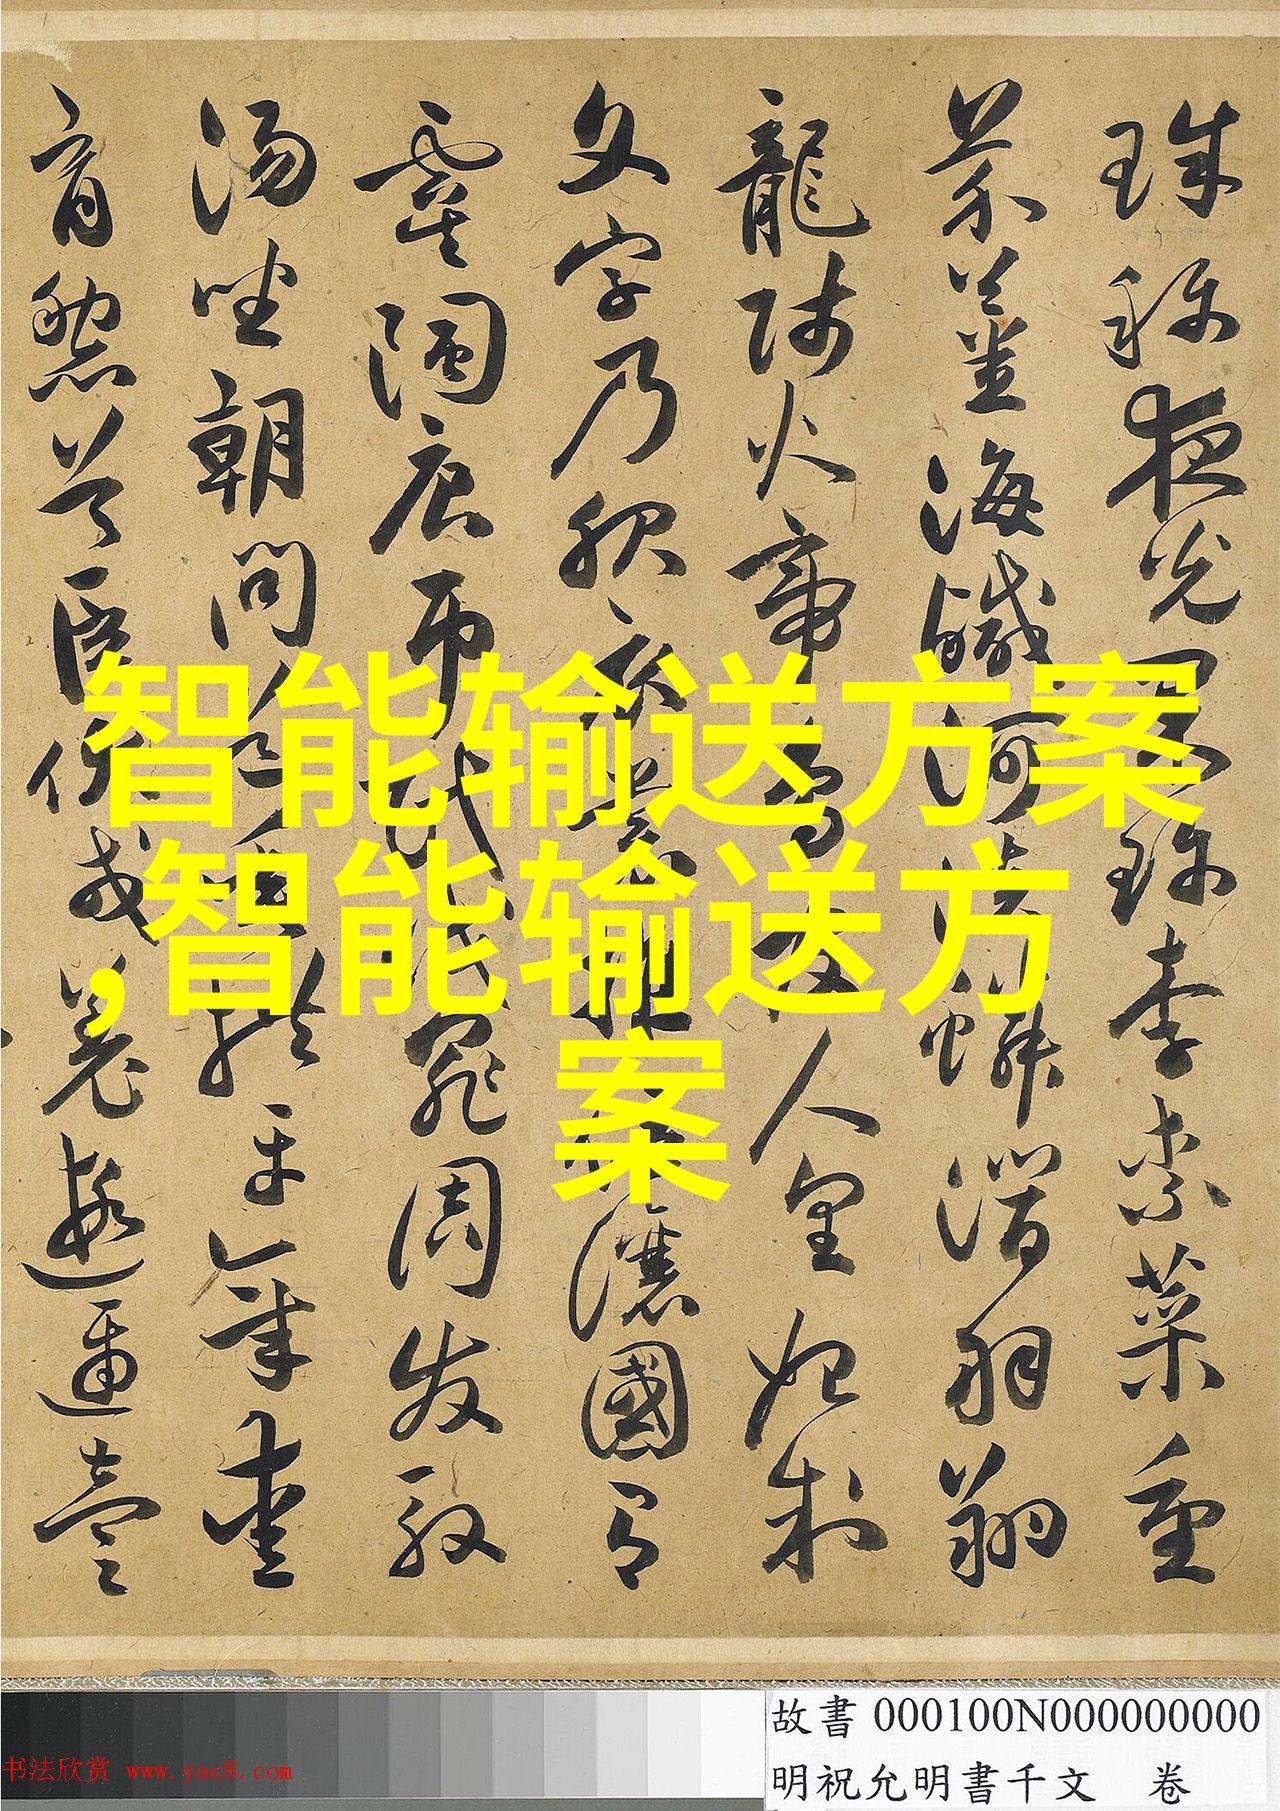 珠称夜光果珍李柰菜重
芥薑海鹹河淡鱗潛羽翔
龍師火帝鳥官人皇始制
文字乃服衣裳推位讓國有
虞陶唐弔民伐罪周发殷
湯坐朝問道垂拱平章愛
育黎首臣伏戎羌遐邇壹
智能输送方案
,智能输送方
案
故書 000100N000000000
明祝允明書千文 卷
书法欣赏 www.yac8.com